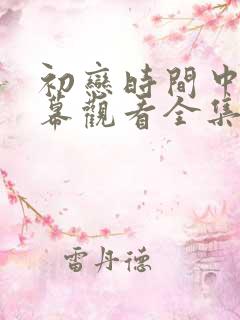 初戀時間中
幕觀看全集
雷丹德